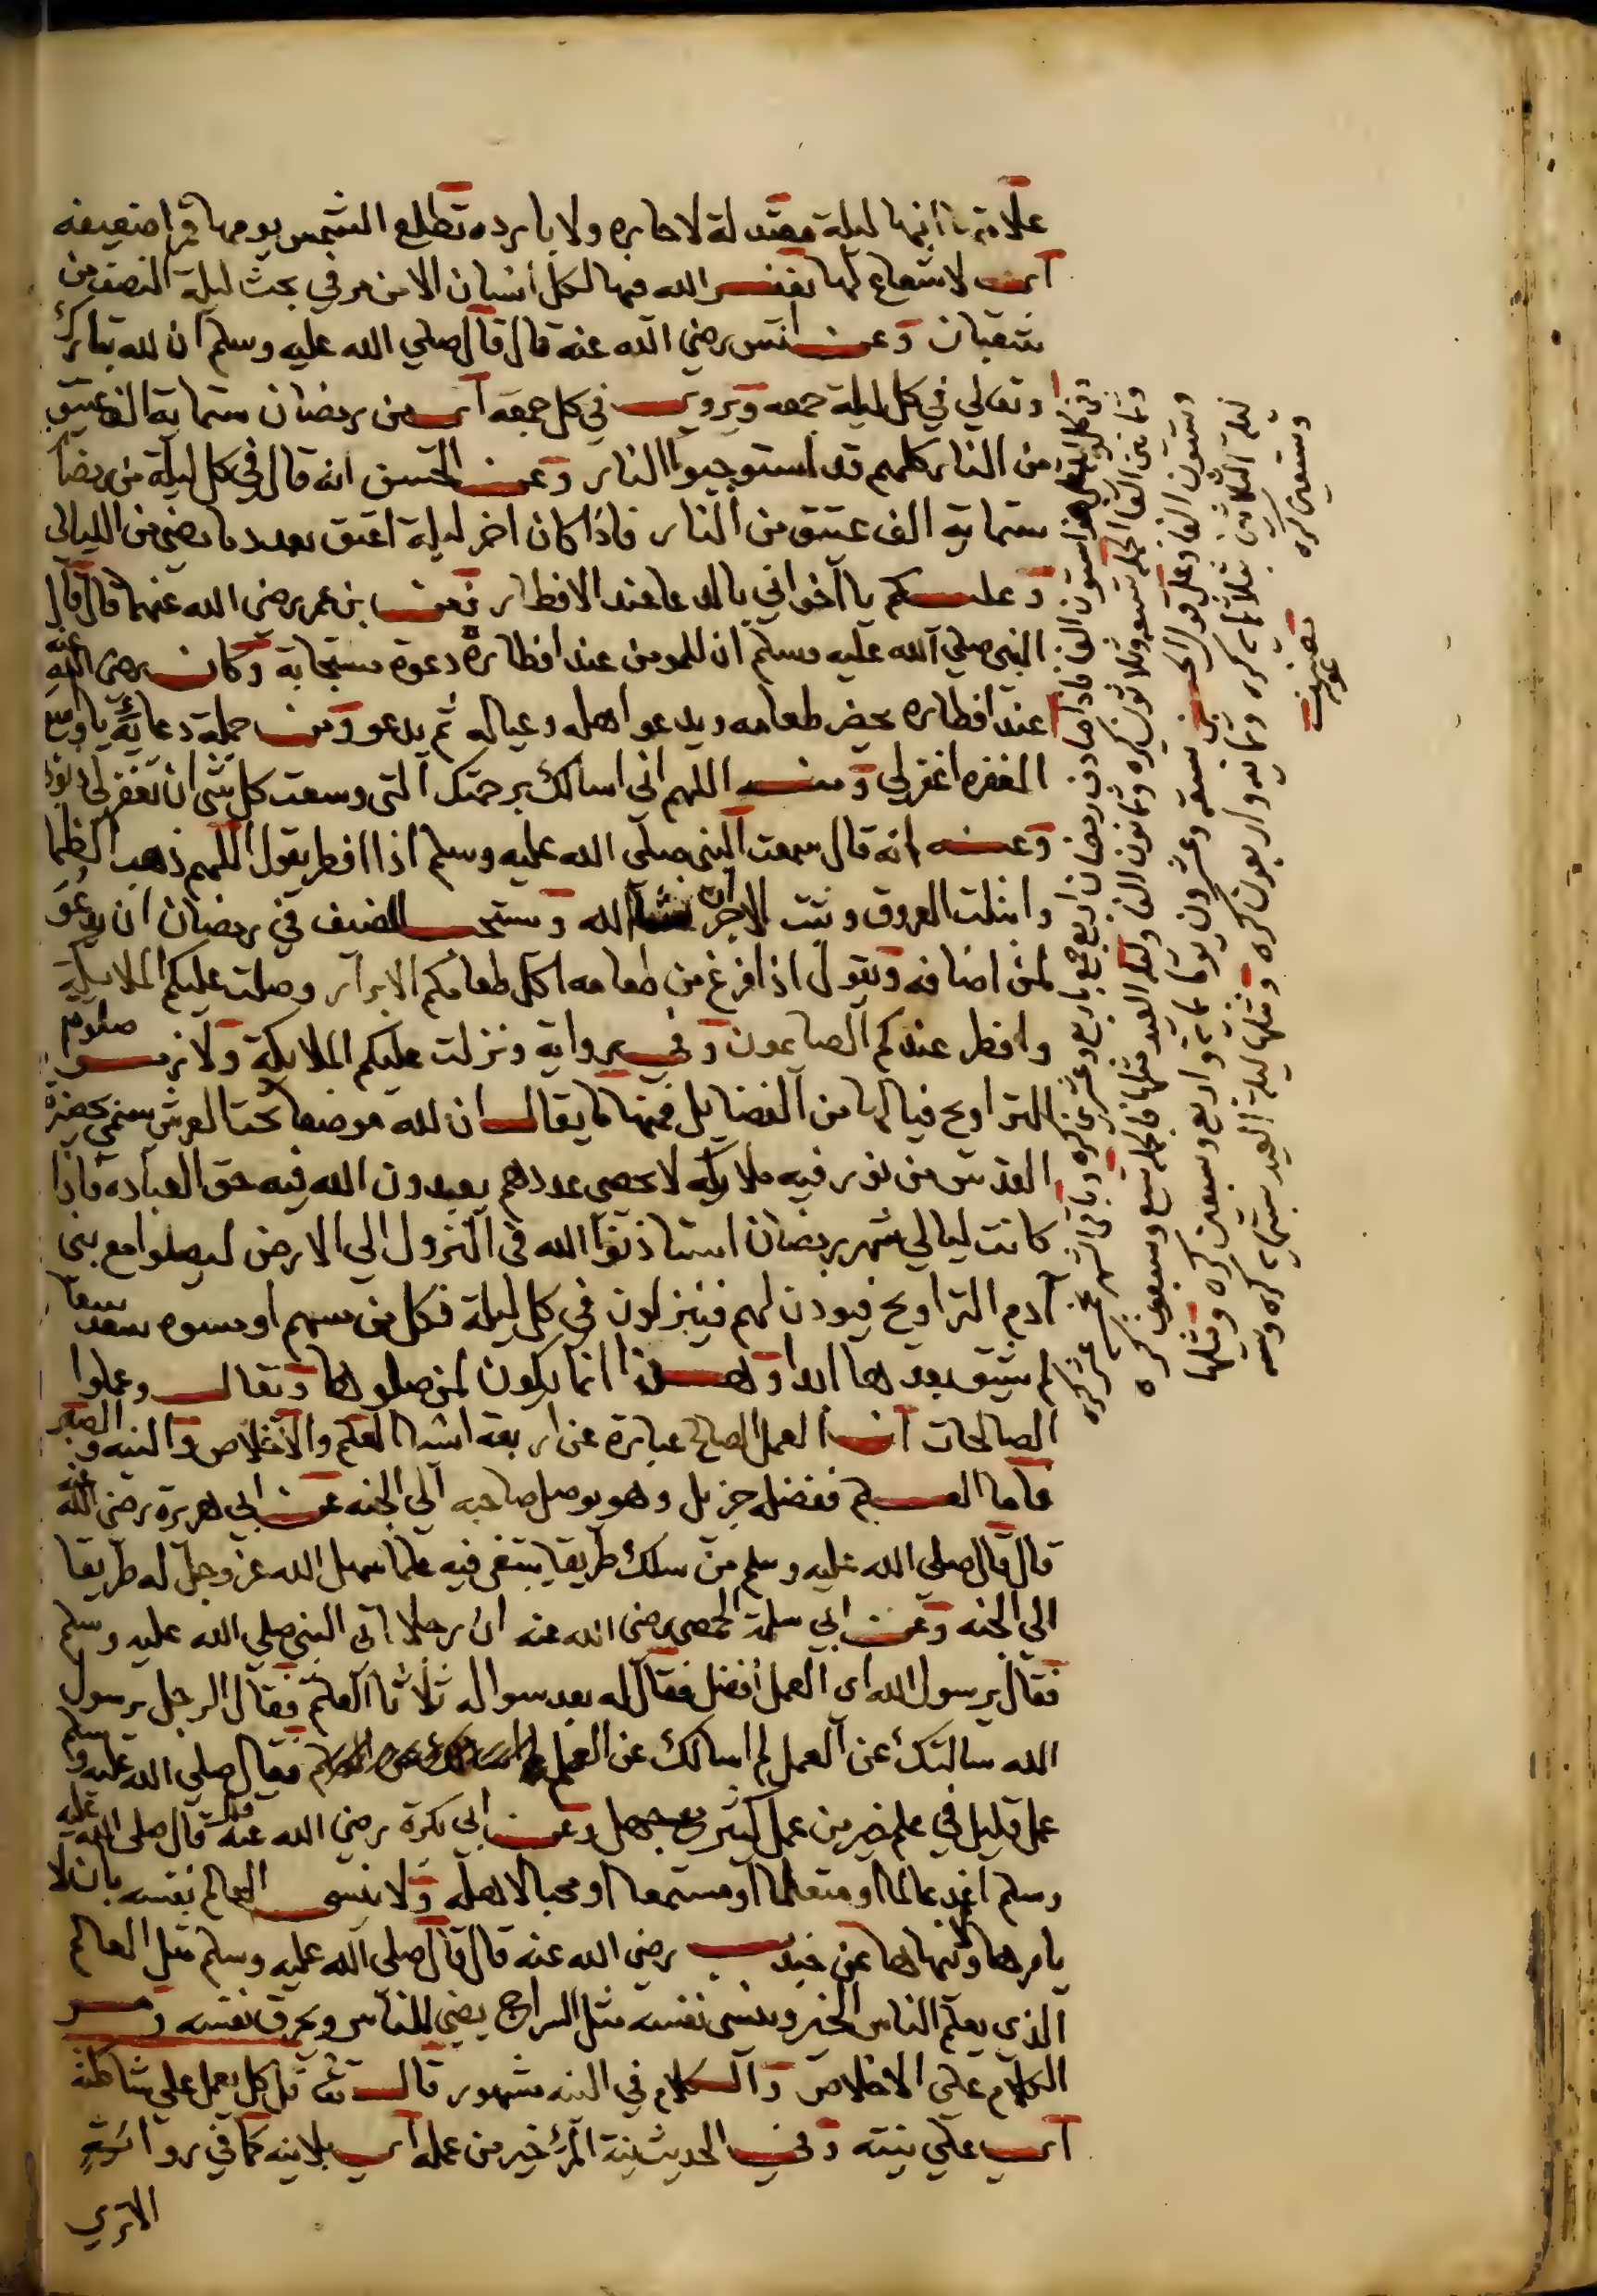 علامتها انها ليلة معتدلة لا حاره ولا بارده تطلع الشمس يومها حمرا ضعيفه
اي لا شعاع لها يغفر الله فيها لكل انسان الا من مر في بحث ليلة النصف من
شعبان وعن انس رضي الله عنه قال قال صلي الله عليه وسلم ان لله تبارك
وتعالي في كل ليلة جمعه ويروي في كل جمعه اي من رمضان ستماية الف عتيق
من النار كلهم قد استوجبوا النار وعن الحسن انه قال في كل ليلة من رمضا
ستماية الف عتيق من النار فاذا كان اخر ليلة اعتق بعدد ما مضي من الليالى
وعليكم يا اخواني بالدعا عند الافطار فعن بن عمر رضي الله عنهما قال قال
النبي صلي الله عليه وسلم ان للمومن عند افطاره دعوة مستجابة وكان رضي الله عنه
عند افطاره يحضر طعامه ويدعو اهله وعياله ثم يدعو ومن جملة دعايه يا واسع
المغفره اغفر لي ومنه اللهم اني اسالك برحمتك التي وسعت كل شي ان تغفر لي ذنوبي
وعنه انه قال سمعت النبي صلي الله عليه وسلم اذا افطر يقول اللهم ذهب الظما
وابتلت العروق وثبت الاجر ان شا الله ويستحب للضيف في رمضان ان يدعو
لمن اضافه ويقول اذا فرغ من طعامه اكل طعامكم الابرار وصلت عليكم الملايكة
وافطر عندكم الصايمون وفي رواية ونزلت عليكم الملايكة صلاة
التراويح فيالها من الفضايل فمنها ما يقال ان لله موضعا تحت العرش يسمي حضرة
القدس من نور فيه ملايكه لا يحصي عددهم يعبدون الله فيه حق العباده فاذا
كانت ليالي شهر رمضان استاذنوا الله في النزول الي الارض ليصلوا مع بني
ادم التراويح فيوذن لهم فينزلون في كل ليلة فكل من مسهم او مسوه سعد سعا
لم يشق بعدها ابدا وهذا انما يكون لمن صلوها وتعالي وعملوا
الصالحات ان العمل الصالح عبارة عن اربعة اشيا العلم والاخلاص والنيه والصبر
فاما العلم ففضله جزيل وهو يوصل صاحبه الي الجنه عن ابي هريرة رضي الله عنه
قال قال صلي الله عليه وسلم من سلك طريقا يبتغي فيه علما سهل الله عز وجل له طريقا
الي الجنه وعن ابي سلمة الحمصي رضي الله عنه ان رجلا اتي النبي صلي الله عليه وسلم
فقال يرسول الله اي العمل افضل فقال له بعد سواله ثلاثا العلم فقال الرجل يرسول
الله سالتك عن العمل لم اسالك عن العلم فقال صلي الله عليه وسلم
عمل قليل في علم خير من عمل كثير مع جهل وعن ابي بكرة رضي الله عنه قال قال صلي الله عليه
وسلم اغد عالما او متعلما او مستمعا او محبا لاهله ولا ينسي العالم نفسه بان لا
يامرها ولا ينهاها عن جندب رضي الله عنه قال قال صلي الله عليه وسلم مثل العالم
الذي يعلم الناس الخير وينسي نفسه مثل السراج يضي للناس ويحرق نفسه
الكلام علي الاخلاص والكلام في النيه مشهور قال تعا قل كل يعمل علي شاكلته
اي علي نيته وفي الحديث نية المرء خير من عمله اي بلا نيه كما في رواية
الاتري
ستون الفا فاذا صادف رمضان اربع جمع باربع وعشرين كره وباقي الشهر
وثمانين الفا الجمله تسعه وثلاثون كره وثمانون الفا وليلة العيد مثلها فالجمله تسع وسبعون كره
وستون الفا وعلي قول الحسن تسعه وعشرون يوما بمايه واربع وسبعين كره ومثلها
ليلة الثلاثين ثلاثمايه كره وثمانيه واربعون كره ومثلها ليلة العيد ستمايه كره وسته
وتسعين كره